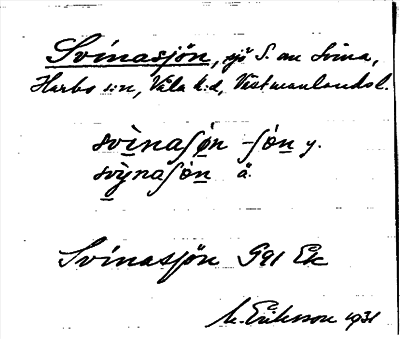 Svinasjön, sjö S. om Svina,
Harbo s:n, Våla h:d, Västmanlands l.
svi̱naʃø̱n -ʃo̱n y.
svy̱naʃo̱n ä.
Svinasjön G91 Ek
M. Eriksson 1931